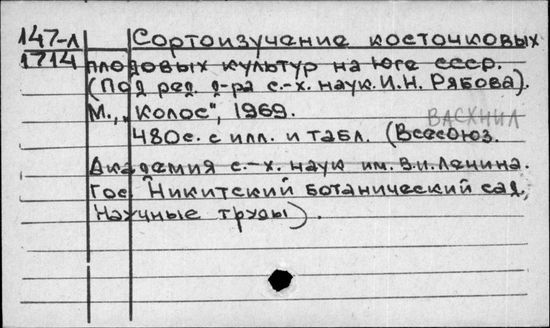 147-л Сортоизучение косточковых
1714 плодовых культур на юге СССР.
(Под ред. д-ра с.-х. наук. И.Н. Рябова).
М., „Колос", 1969.
ВАСХНИЛ
480с. с илл. и табл. (Всесоюз.
Академия с.-х. наук им. В.И. Ленина.
Гос. Никитский ботанический сад,
Научные труды).